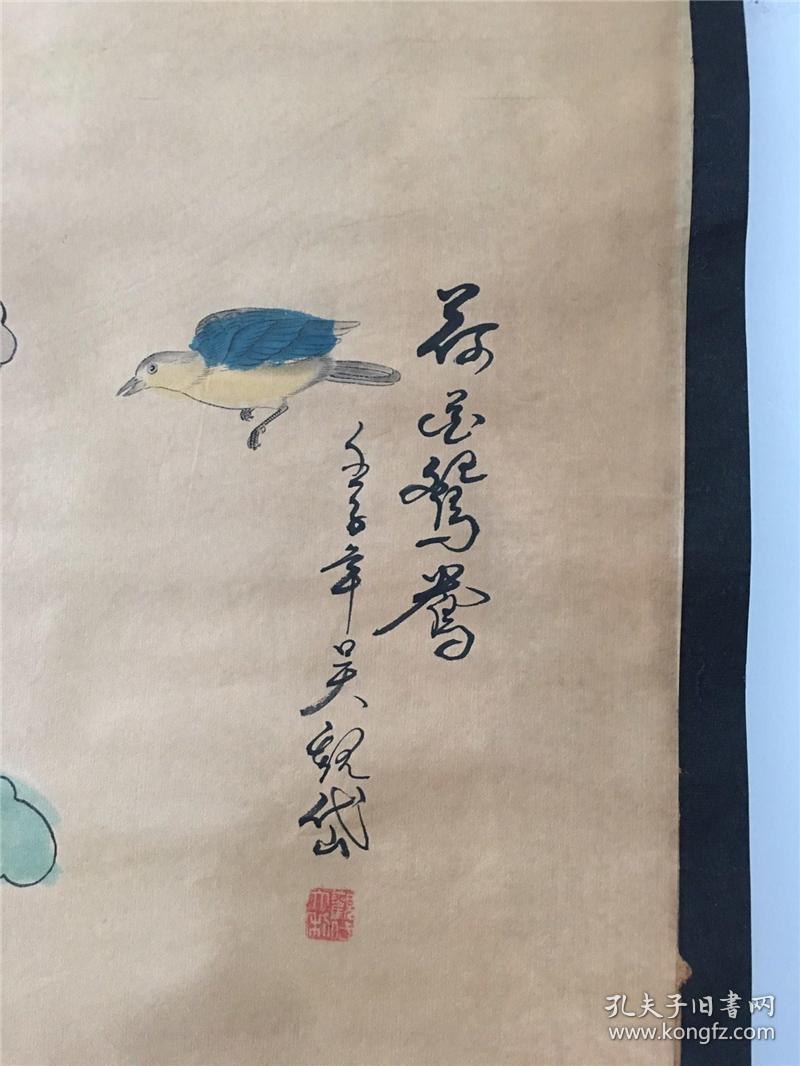 荷花鴛鴦
壬子年吴観岱
孔夫子旧書网
www.kongfz.com